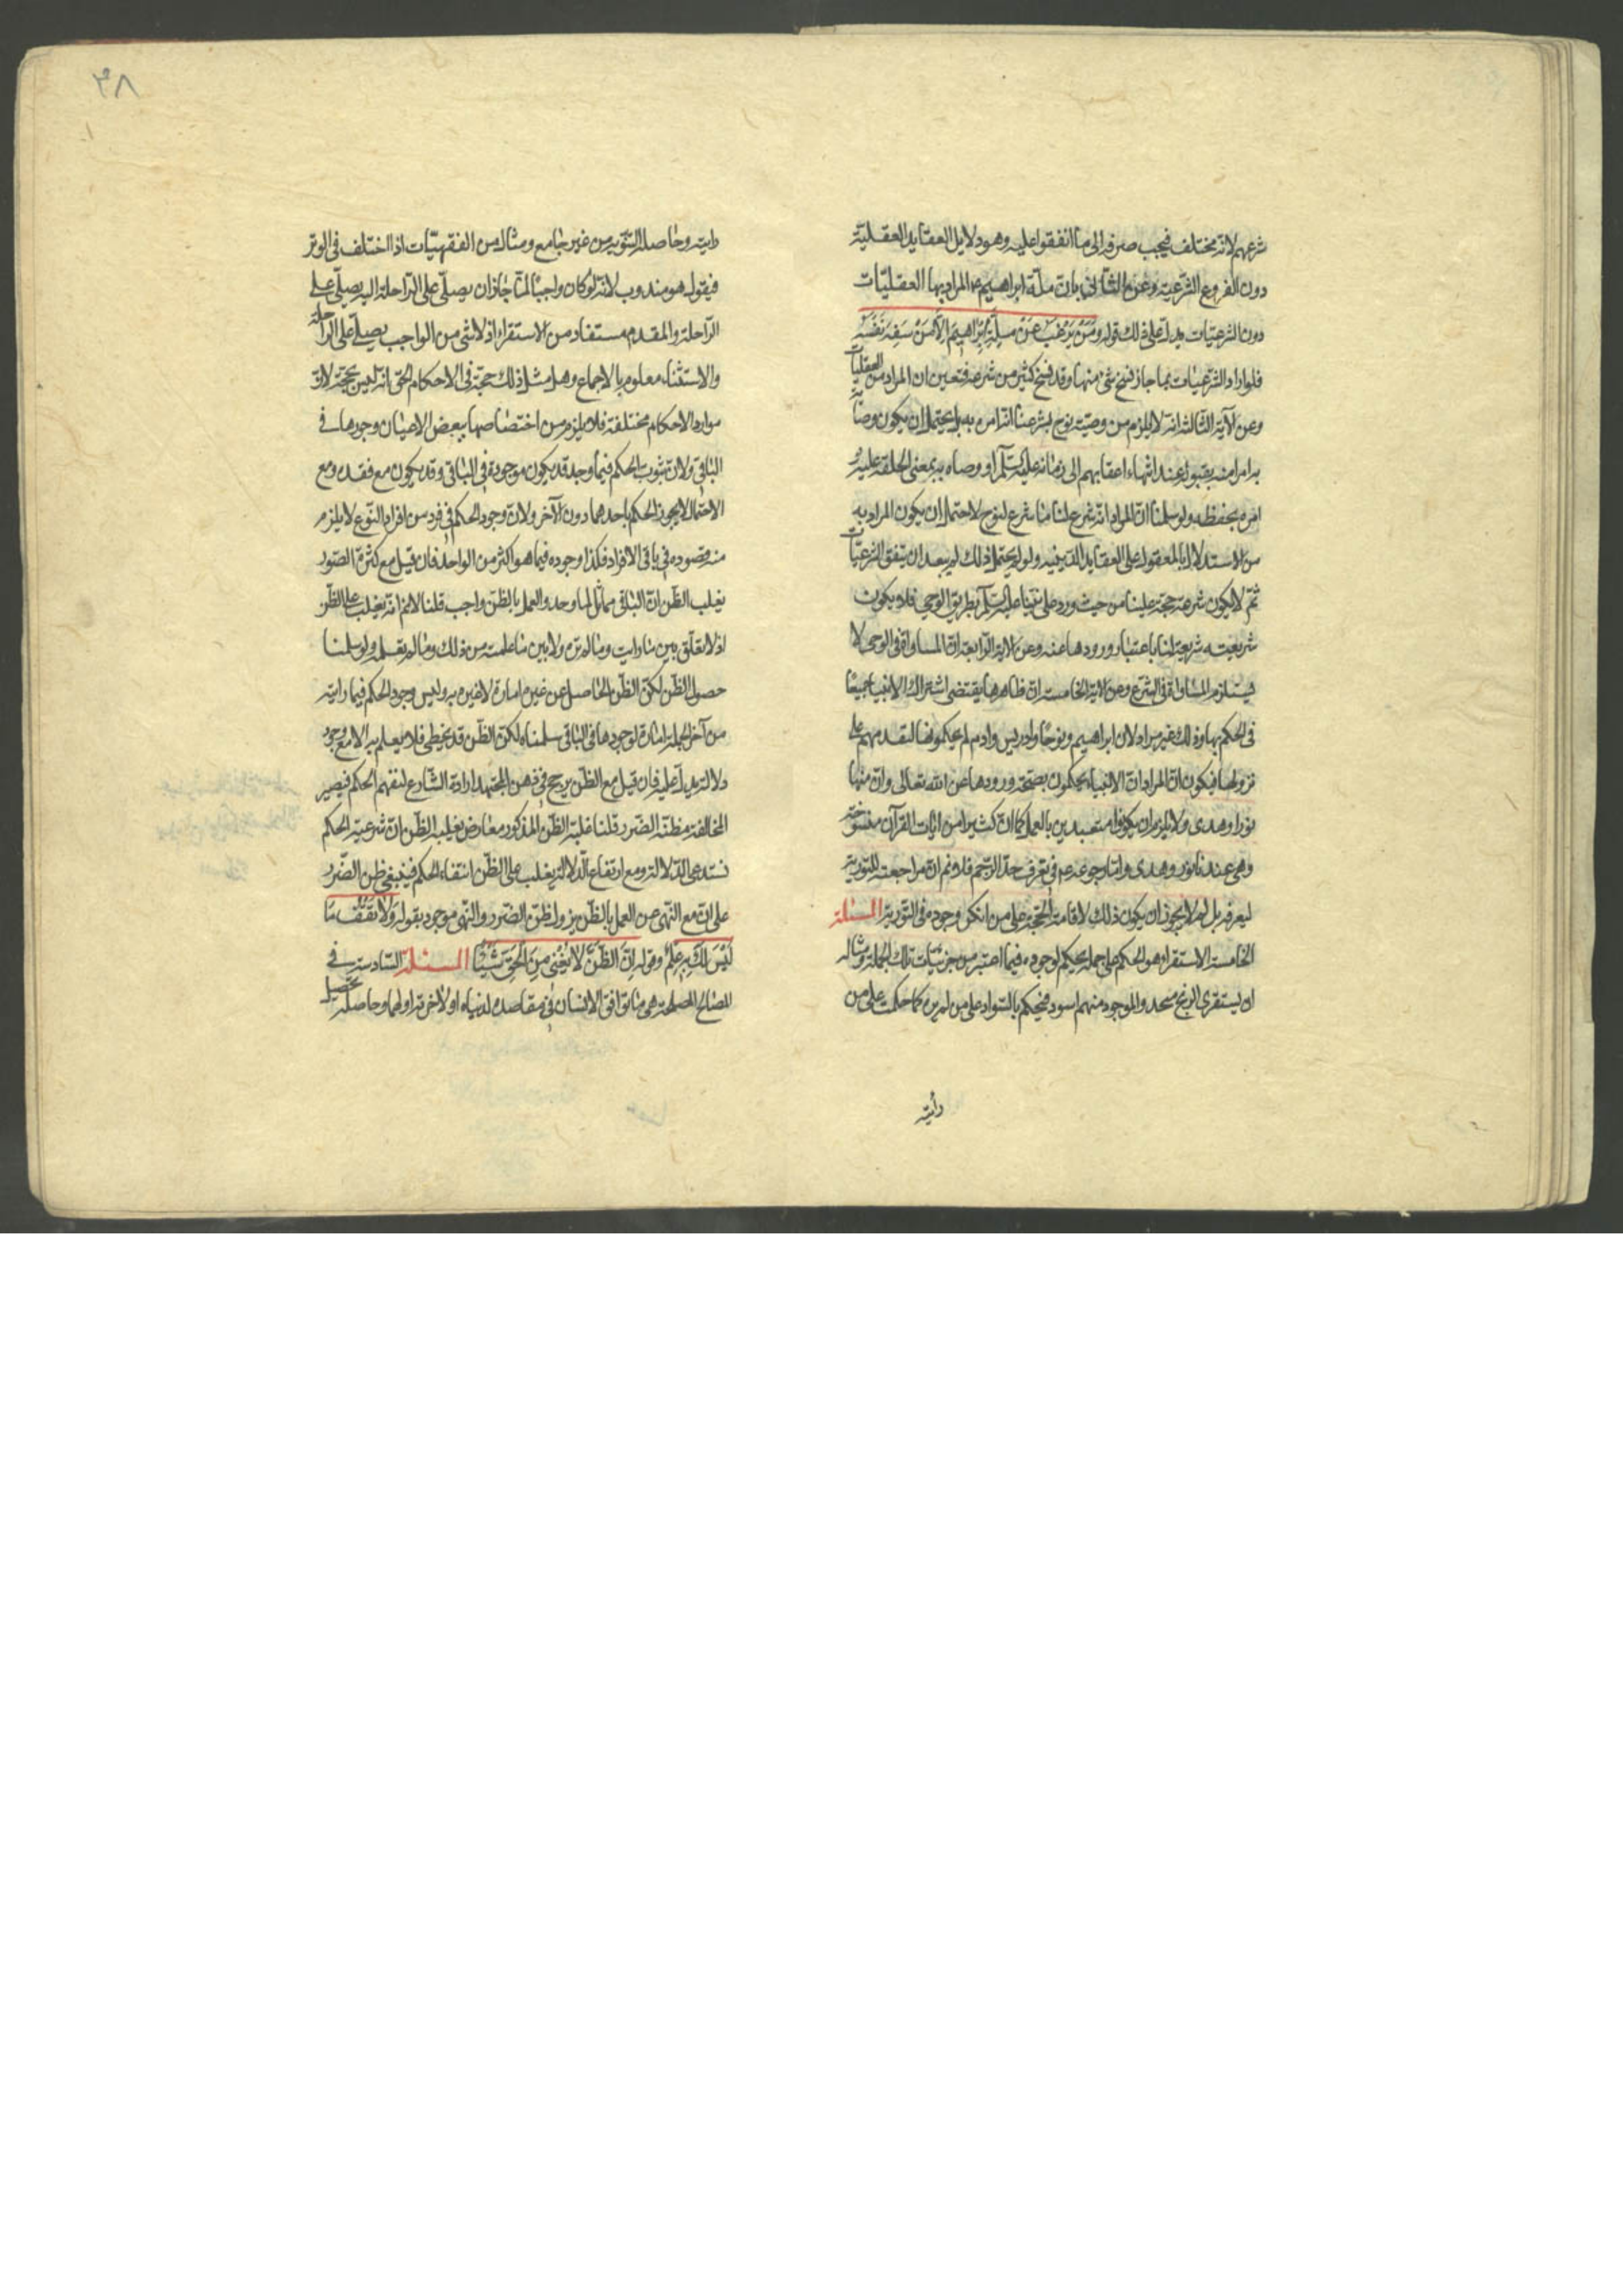 شرعهم لانه مختلف فيجب صرفه الى ما اتفقوا عليه وهو دلايل العقايد العقلية
دون الفروع الشرعية وعن الثانى بان ملة ابراهيم ع المراد بها العقليات
دون الشرعيات يدل على ذلك قوله ومن يرغب عن ملة ابراهيم الا من سفه نفسه
فلو اراد الشرعيات لما جاز نسخ شئ منها وقد نسخ كثير من شرعه فتعين ان المراد منه العقليات
وعن الآية الثالثة انه لا يلزم من وصية نوح بشرعنا انه امر به بل يحتمل ان يكون وصاه
به امرا منه بقبوله عند انتهاء اعقابهم الى زمانه عليه السلم او وصاه به بمعنى اطلعه عليه و
امره بحفظه ولو سلمنا ان المراد انه شرع لنا ما شرع لنوح لاحتمل ان يكون المراد به
من الاستدلال بالمعقول على العقايد الدينية ولو لم يحتمل ذلك لم يبعد ان يتفق الشرعيات
ثم لا يكون شرعه حجة علينا من حيث ورد على نبينا عليه السلم بطريق الوحى فلا يكون
شريعته شريعة لنا باعتبار ورودها عنه وعن الاية الرابعة ان المساواة فى الوحى لا
يستلزم المساواة فى الشرع وعن الاية الخامسة ان ظاهرها يقتضى اشتراك الانبياء جميعا
فى الحكم بها وذلك غير مراد لان ابراهيم ونوحا وادريس وادم لم يحكموا بها لتقدمهم على
نزولها فيكون المراد ان الانبياء يحكمون بصحة ورودها عن الله تعالى وان منها
نورا وهدى ولا يلزم ان يكونوا متعبدين بالعمل كما ان كثيرا من ايات القرآن منسوخة
وهى عندنا نور وهدى واما رجوعه ع فى تعرف حد الرجم فلا نم ان مراجعته للتورية
ليعرفه بل لم لا يجوز ان يكون ذلك لاقامة الحجة على من انكر وجوده فى التورية المسئلة
الخامسة الاستقراء هو الحكم على جملة بحكم لوجوده فيما اعتبر من جزئيات تلك الجملة ومثاله
ان يستقرى الزنج فيجد الموجود منهم اسود فيحكم بالسواد على من لم يره كما حكمت على من
رأيته
٣٨
رايته وحاصله التسوية من غير جامع ومثاله من الفقهيات اذا اختلف فى الوتر
فيقول هو مندوب لانه لو كان واجبا لما جاز ان يصلى على الراحلة لكنه يصلى على
الراحلة والمقدم مستفاد من الاستقراء اذ لا شئ من الواجب يصلى على الراحلة
والاستثناء معلوم بالاجماع وهل مثل ذلك حجة فى الاحكام الحق انه ليس بحجة لان
موارد الاحكام مختلفة فلا يلزم من اختصاصها ببعض الاعيان وجودها فى
الباقى ولان ثبوت الحكم فيما وجد قد يكون موجودا فى الباقى وقد يكون مع فقده ومع
الاحتمال لا يجوز الحكم باحدهما دون الآخر ولان وجود الحكم فى فرد من افراد النوع لا يلزم
منه وجوده فى باقى الافراد فكذا وجوده فيما هو اكثر من الواحد فان قيل مع كثرة الصور
يغلب الظن ان الباقى مماثل لما وجد والعمل بالظن واجب قلنا لا نم انه يغلب على الظن
اذ لا تعلق بين ما رايت وما لم تره ولا بين ما علمته من ذلك وما لم تعلمه ولو سلمنا
حصول الظن لكن الظن الحاصل عن غير امارة لا عبرة به وليس وجود الحكم فيما رايته
من آخر الجملة امارة لوجودها فى الباقى سلمناه لكن الظن قد يخطى فلا يعلم به الا مع وجود
دلالة يدل عليه فان قيل مع الظن يرجح فى ذهن المجتهد ارادة الشارع لنفهم الحكم فيصير
المخالفة مظنة الضرر قلنا غلبة الظن المذكور معارض بغلبة الظن ان شرعية الحكم
تستدعى الدلالة ومع ارتفاع الدلالة يغلب على الظن انتفاء الحكم فينبغى ظن الضرر
على ان مع النهى عن العمل بالظن يزول ظن الضرر والنهى موجود بقوله ولا تقف ما
ليس لك به علم وقوله ان الظن لا يغنى من الحق شيئا المسئلة السادسة فى
المصالح المصلحة هى ما توافق الانسان فى مقاصده لدنياه او لاخرته او لهما وحاصله تحصيل